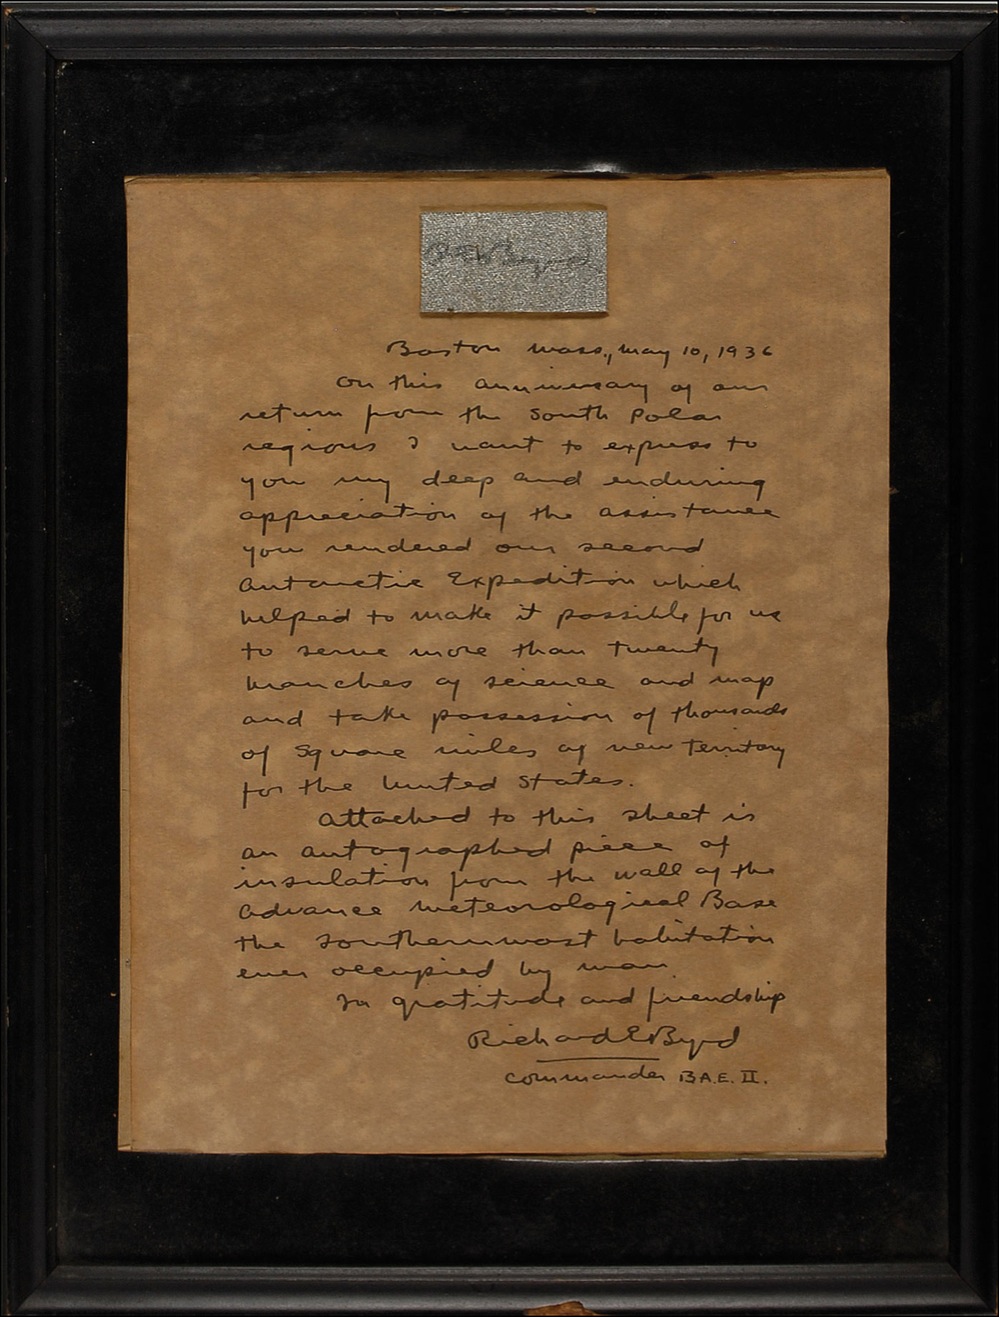 R E Byrd
Boston Mass., May 10, 1936
On this anniversary of our
return from the South Polar
regions I want to express to
you my deep and enduring
appreciation of the assistance
you rendered our second
Antarctic Expedition which
helped to make it possible for us
to serve more than twenty
branches of science and map
and take possession of thousands
of square miles of new territory
for the United States.
Attached to this sheet is
an autographed piece of
insulation from the wall of the
Advance Meteorological Base
the southernmost habitation
ever occupied by man.
In gratitude and friendship
Richard E Byrd
Commander B.A.E. II.